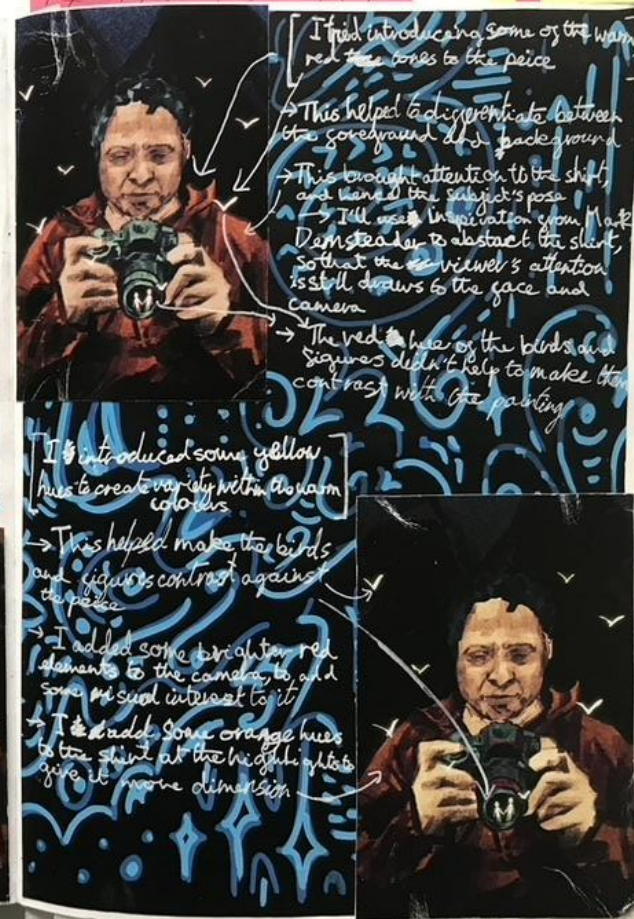 I tried introducing some of the warm
red tones to the peice
→ This helped to differentiate between
the foreground and background
→ This brought attention to the shirt,
and hence the subject's pose
→ I'll use inspiration from Mark
Demsteader to abstact the shirt,
so that the viewer's attention
is still draws to the face and
camera
→ The red hue of the birds and
figures didn't help to make them
contrast with the painting
I introduced some yellow
hues to create variety within the warm
colours
→ This helped make the birds
and figures contrast against
the peice
→ I added some brighter red
elements to the camera, to add
some visual interest to it
→ I add some orange hues
to the shirt at the highlights to
give it more dimension